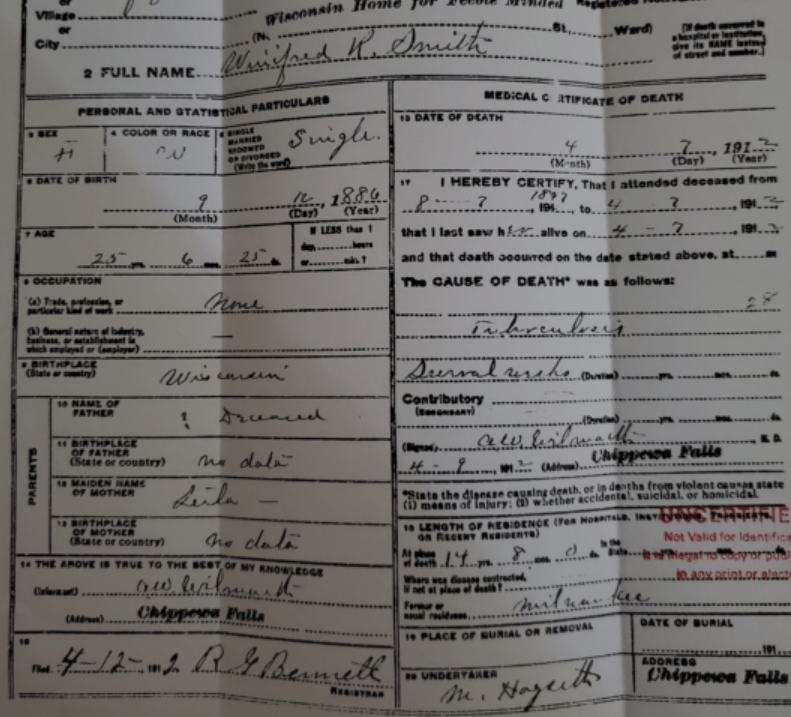 or
Village
or
City
Wisconsin Home for Feeble Minded
(No. St. Ward)
[If death occurred in a hospital or institution, give its NAME instead of street and number.]
2 FULL NAME Winifred R. Smith
PERSONAL AND STATISTICAL PARTICULARS
3 SEX
F
4 COLOR OR RACE
W
5 SINGLE
MARRIED
WIDOWED
OR DIVORCED
(Write the word)
Single.
6 DATE OF BIRTH
9 12, 1886
(Month) (Day) (Year)
7 AGE
25 yrs. 6 mos. 25 ds.
If LESS than 1
day, hours
or min.?
8 OCCUPATION
(a) Trade, profession, or
particular kind of work None
(b) General nature of industry,
business, or establishment in
which employed or (employer) —
9 BIRTHPLACE
(State or country) Wisconsin
PARENTS
10 NAME OF
FATHER ? Deceased
11 BIRTHPLACE
OF FATHER
(State or country) no data
12 MAIDEN NAME
OF MOTHER Leila —
13 BIRTHPLACE
OF MOTHER
(State or country) no data
14 THE ABOVE IS TRUE TO THE BEST OF MY KNOWLEDGE
(Informant) A.W. Wilmarth
(Address) Chippewa Falls
15
Filed 4-12-, 1912 R G Bennett
REGISTRAR
MEDICAL CERTIFICATE OF DEATH
16 DATE OF DEATH
4 7, 1912
(Month) (Day) (Year)
17 I HEREBY CERTIFY, That I attended deceased from
8 - 7 1897, 191, to 4 - 7, 1912
that I last saw her alive on 4 - 7, 1912
and that death occurred on the date stated above, at m
The CAUSE OF DEATH* was as follows:
28
Tuberculosis
Several weeks (Duration) yrs. mos. ds.
Contributory
(SECONDARY)
(Duration) yrs. mos. ds.
(Signed) A.W. Wilmarth, M. D.
4 - 9, 1912 (Address) Chippewa Falls
*State the disease causing death, or in deaths from violent causes state
(1) means of injury; (2) whether accidental, suicidal, or homicidal.
18 LENGTH OF RESIDENCE (FOR HOSPITALS, INSTITUTIONS, TRANSIENTS,
OR RECENT RESIDENTS)
At place
of death 14 yrs. 8 mos. 0 ds. In the
State
Where was disease contracted,
if not at place of death?
Former or
usual residence Milwaukee
UNCERTIFIE
Not Valid for Identifica
It is illegal to copy or publi
in any print or electr
19 PLACE OF BURIAL OR REMOVAL
DATE OF BURIAL
191
20 UNDERTAKER
M. Hogseth
ADDRESS
Chippewa Falls